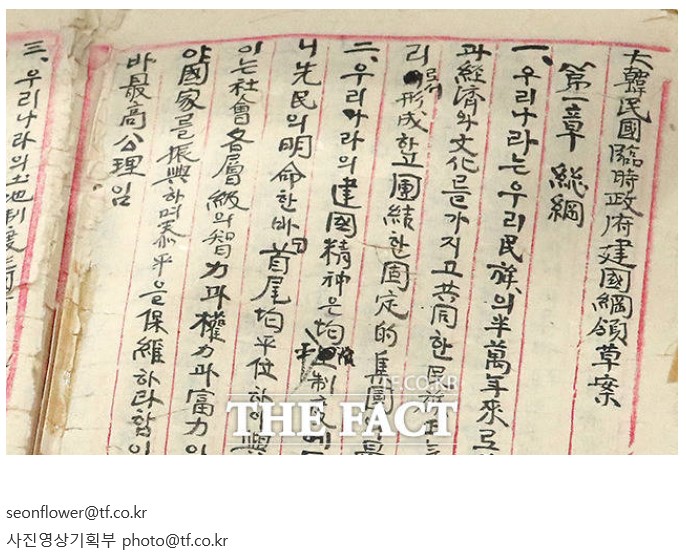 大韓民國臨時政府建國綱領草案
第一章 総綱
一、우리나라는 우리民族의 半萬年來로
과 經濟와 文化를 가지고 共同한 民族正
리로 形成한 고 團結한 固定的 集團의
二、우리나라의 建國精神은 均 制度에
니 先民의 明命한바 首尾均平位하야 興
이는 社會各層級의 智力과 權力과 富力의
야 國家를 振興하며 泰平을 保維하라 함이
바 最高公理임
三、우리나라의 土地制度
TF.CO.KR
THE FACT
seonflower@tf.co.kr
사진영상기획부 photo@tf.co.kr